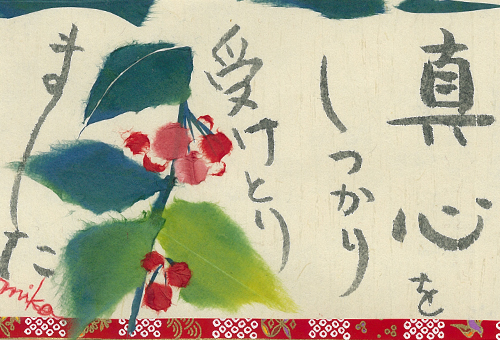 真心を
しっかり
受けとり
ました
miko